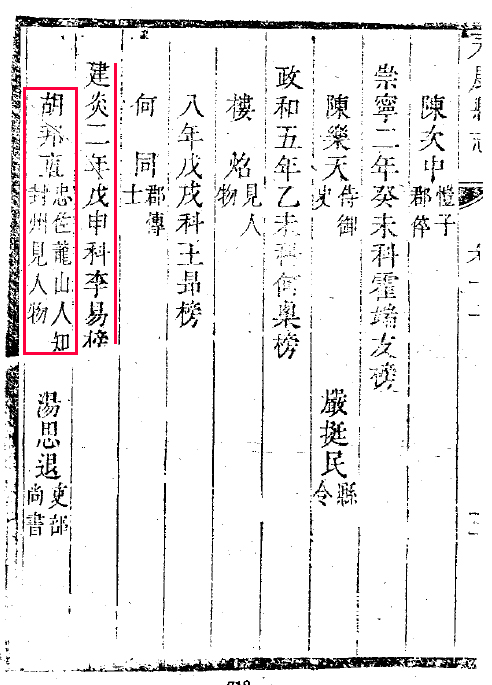 縣志
陳次中 愷子郡倅
崇寧二年癸未科霍端友榜
陳樂天 侍御史 嚴挺民 縣令
政和五年乙未科何㮚榜
樓炤 見人物
八年戊戌科王昂榜
何同 郡博士
建炎二年戊申科李易榜
胡邦直 忠仕龍山人知封州見人物 湯思退 吏部尚書